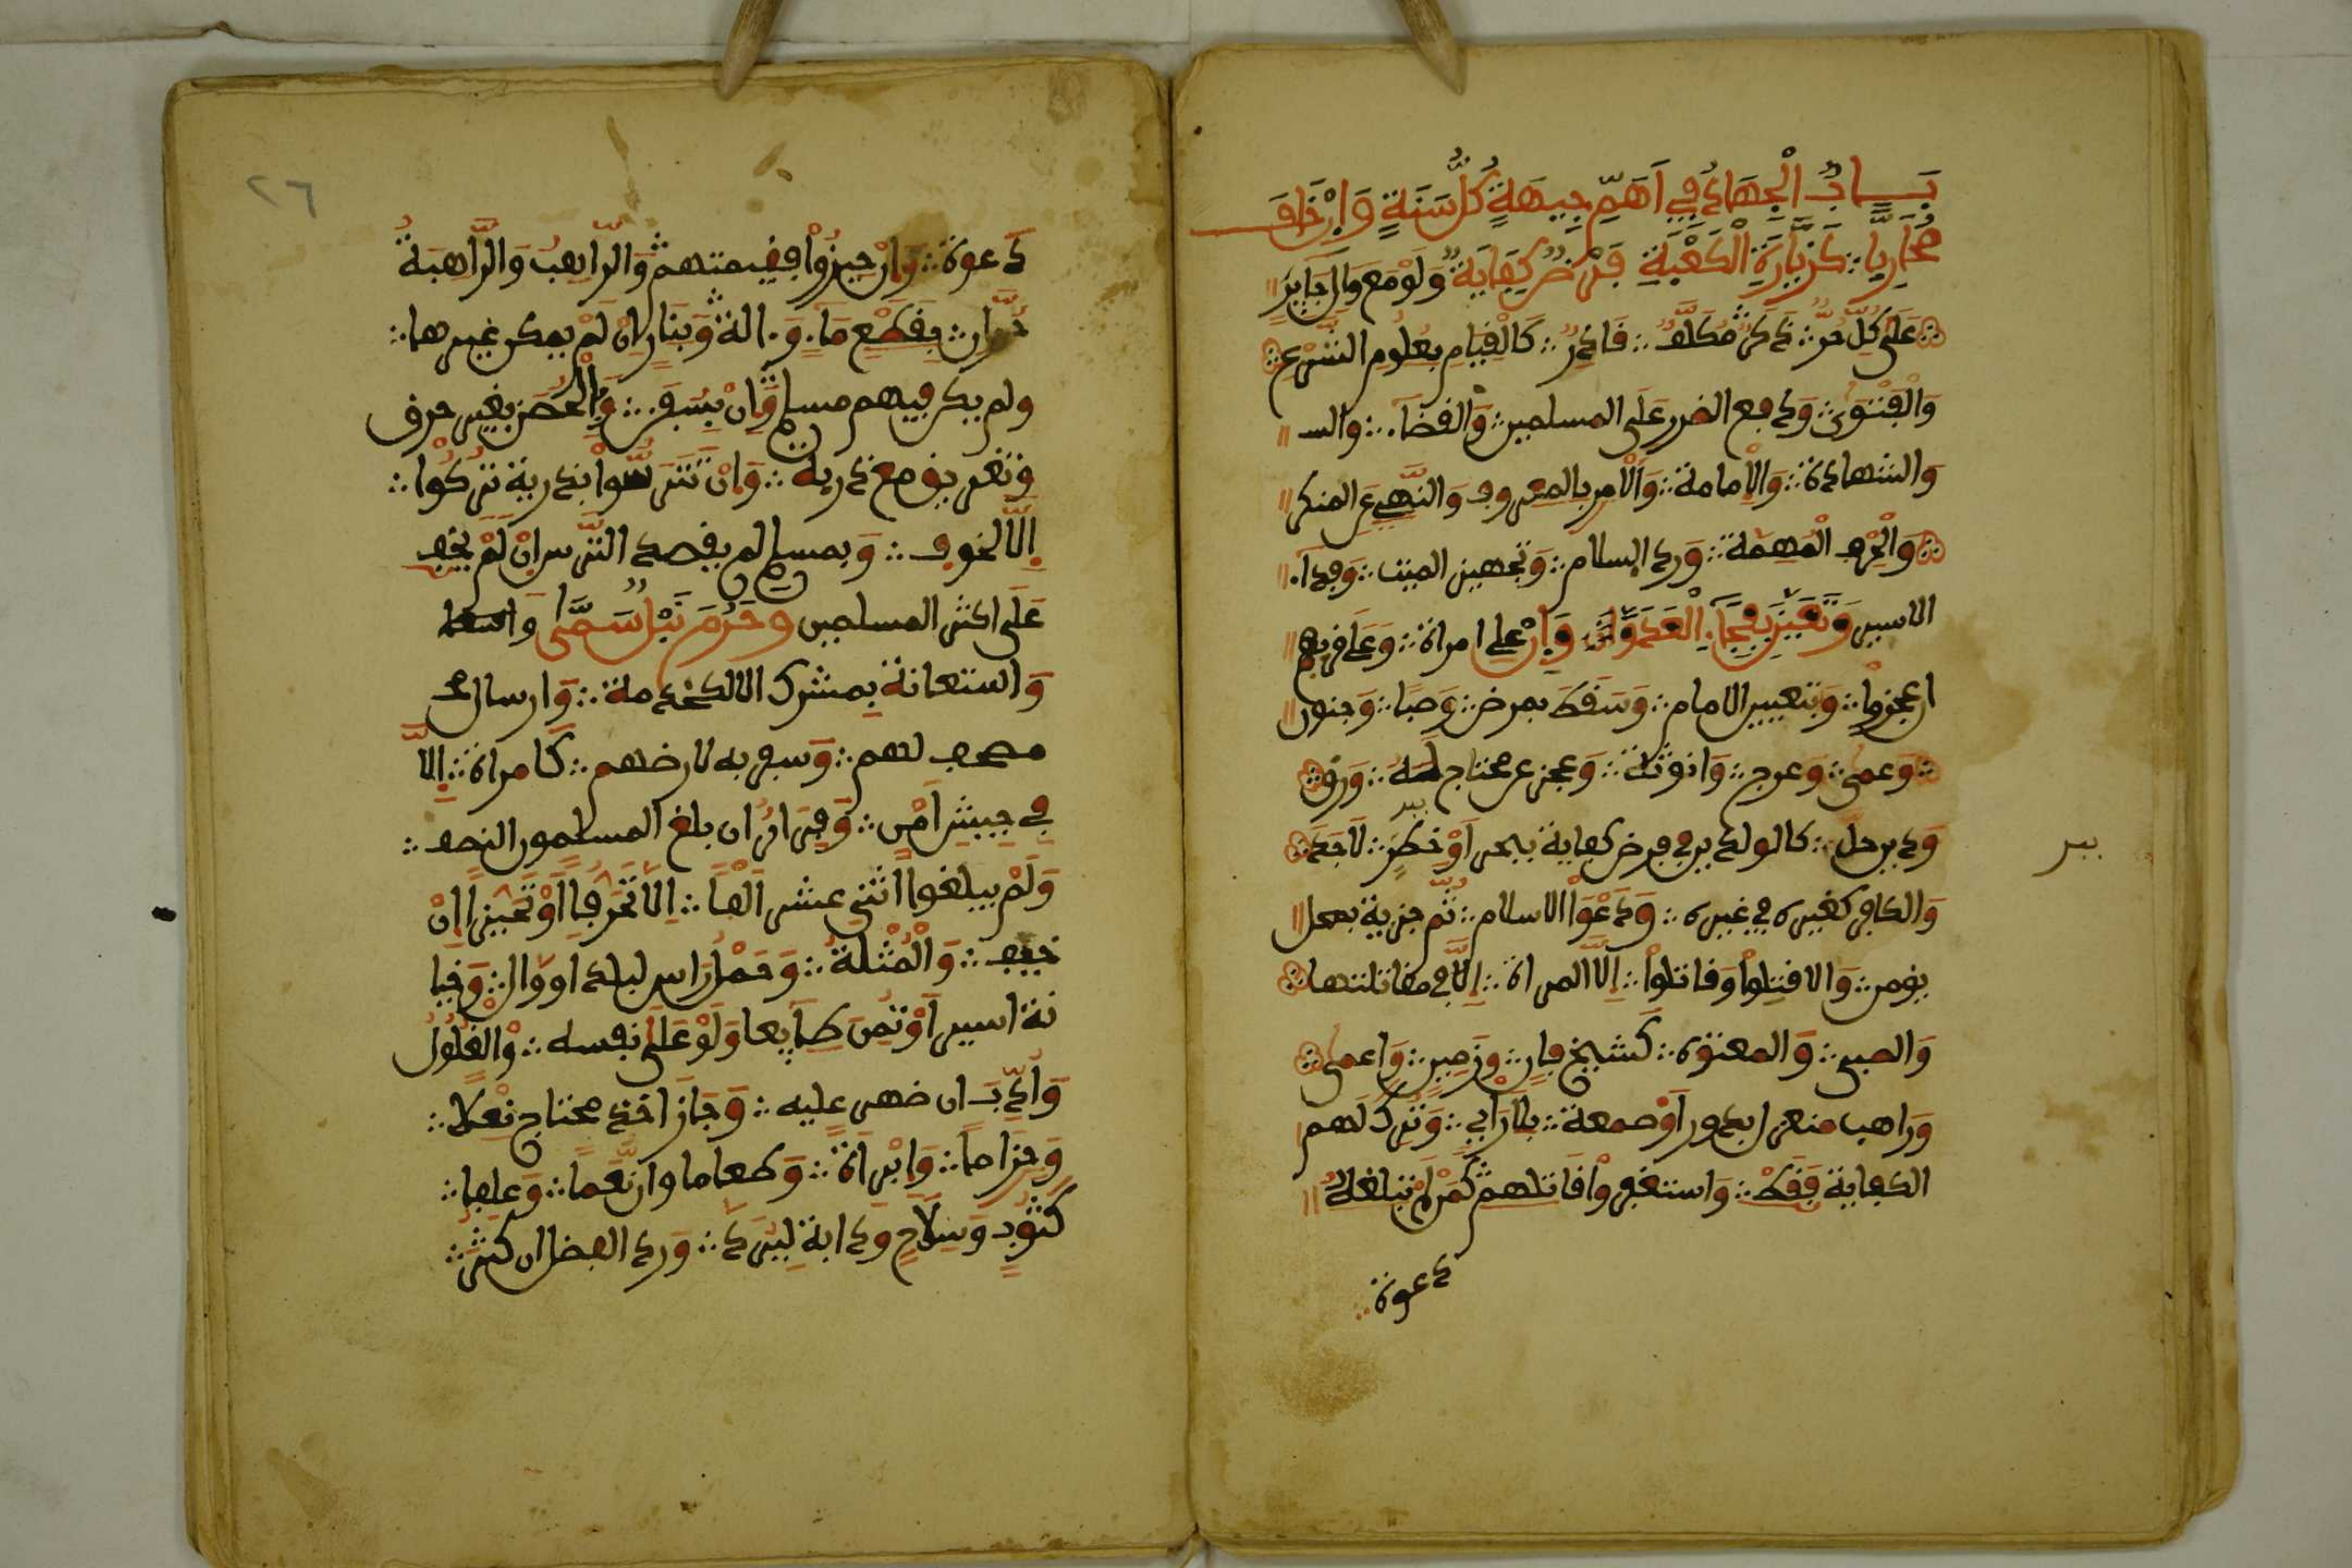 بَابُ الْجِهَادُ فِي اَهَمِّ جِهَةٍ كُلَّ سَنَةٍ وَاِنْ خَافَ
مُحَارِبًا كَزِيَارَةِ الْكَعْبَةِ فَرْضُ كِفَايَةٍ وَلَوْ مَعَ وَالٍ جَايِرٍ
عَلَى كُلِّ حُرٍّ ذَكَرٍ مُكَلَّفٍ قَادِرٍ كَالْقِيَامِ بِعُلُومِ الشَّرْعِ
وَالْفَتْوَى وَدفع الضرر عَلَى المسلمين وَالقضَاء والسـ
وَالشهادة وَالْاِمامة وَالْاَمر بِالمعروف وَالنَّهْيِ عن المنكر
وَالْحِرف الْمُهِمَّة وَرد السلام وَتجهيز الميت وَفِدَاء
الاسير وَتَعَيَّنَ بِفَجْإِ الْعَدُوِّ وَاِنْ عَلَى امراة وَعَلَى قربهم
ان عجزوا وَبتعيين الامام وَسَقَطَ بمرض وَصبًا وَجنون
وَعمى وَعرج وَانوثة وَعجز عن محتاج له وَرق
وَدين حل كالولدين في فرض كفاية ببحر اَوْ خطر لَا جَدَّ
بير
بير
وَالكافر كغيره في غيره وَدُعُوْا الاسلام ثُمَّ جزية بمحل
يؤمن وَالا قتلوا وَقاتلوا اِلَّا المراة اِلَّا في مقاتلتها
وَالصبي وَالمعتوه كَشيخ فَانٍ وَزَمِنٍ وَاعمى
وَراهب منعزل بدير اَوْ صمعة بِلَا رَاْيٍ وَتُرك لَهم
الكفاية فَقَطْ وَاستغفر قَاتلهم كَمَنْ لَمْ تبلغه
دعوة
٢٦
دَعوة وَاِنْ حِيزُوا فَقيمتهم وَالرَّاهِبُ وَالرَّاهِبَةُ
حُرَّانِ بِقَطْعِ مَاءٍ وَءالة وَبِنَارٍ اِنْ لَمْ يمكن غيرها
ولم يكن فيهم مسلم وَاِنْ بِسُفُنٍ وَبِالْحِصْنِ بغير حرق
وتغريق مع ذرية وَاِنْ تَتَرَّسُوا بذرية تُرِكُوا
اِلَّا لخوف وَبمسلم لم يقصد الترس اِنْ لَمْ يخف
عَلَى اكثر المسلمين وَحَرُمَ نَبْلٌ سُمَّ
وَاستعانة بِمشرك الا لخدمة وَارسال
مصحف لهم وَسفر به لارضهم كَامراة اِلَّا
فِي جيش اَمْنٍ وَفِرَارٌ ان بلغ المسلمون النصف
وَلَمْ يبلغوا اثني عشر اَلْفًا اِلَّا تَحَرُّفًا اَوْ تَحَيُّزًا اِنْ
خيف وَالْمُثْلَةُ وَحَمْلُ رَاس لبلد او وَال وَخيا
نة اسير اَوْتُمِنَ طَايعا وَلَوْ عَلَى نفسه وَالغُلُولُ
وَاُدِّبَ ان ظهر عليه وَجَازَ اخذ محتاج نَعْلًا
وَحِزَامًا وَاِبْرَاة وَطعاما وان نَعَمًا وَعلفا
كَثَوْبٍ وَسِلَاحٍ وَدابة لِيَرُدَّ وَرد الفضل ان كَثُرَ